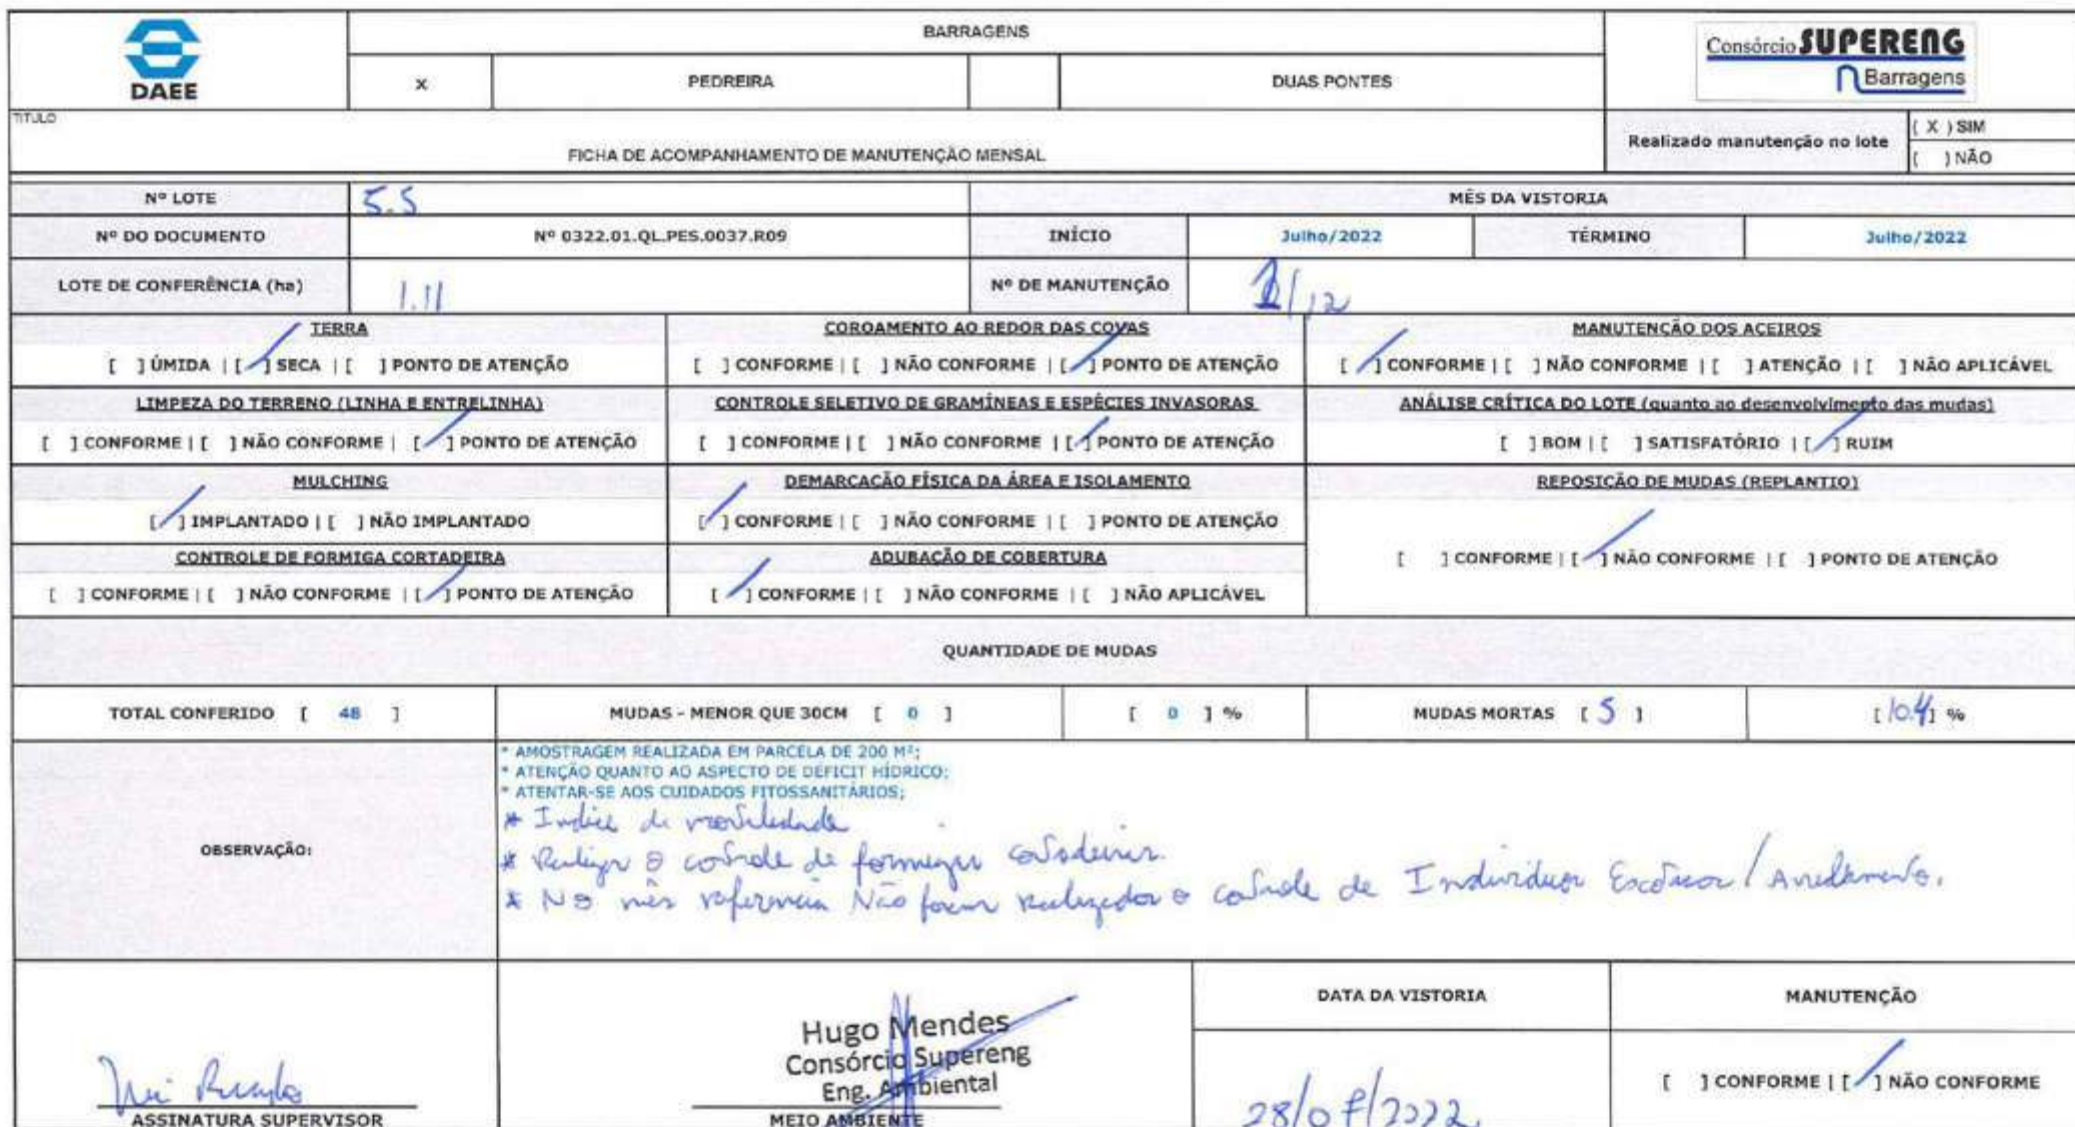 DAEE
BARRAGENS
x PEDREIRA DUAS PONTES
Consórcio SUPERENG
Barragens
TITULO
FICHA DE ACOMPANHAMENTO DE MANUTENÇÃO MENSAL
Realizado manutenção no lote
( X ) SIM
( ) NÃO
Nº LOTE 5.5 MÊS DA VISTORIA
Nº DO DOCUMENTO Nº 0322.01.QL.PES.0037.R09 INÍCIO Julho/2022 TÉRMINO Julho/2022
LOTE DE CONFERÊNCIA (ha) 1.11 Nº DE MANUTENÇÃO 1/12
TERRA
[ ] ÚMIDA | [/] SECA | [ ] PONTO DE ATENÇÃO
COROAMENTO AO REDOR DAS COVAS
[ ] CONFORME | [ ] NÃO CONFORME | [/] PONTO DE ATENÇÃO
MANUTENÇÃO DOS ACEIROS
[/] CONFORME | [ ] NÃO CONFORME | [ ] ATENÇÃO | [ ] NÃO APLICÁVEL
LIMPEZA DO TERRENO (LINHA E ENTRELINHA)
[ ] CONFORME | [ ] NÃO CONFORME | [/] PONTO DE ATENÇÃO
CONTROLE SELETIVO DE GRAMÍNEAS E ESPÉCIES INVASORAS
[ ] CONFORME | [ ] NÃO CONFORME | [/] PONTO DE ATENÇÃO
ANÁLISE CRÍTICA DO LOTE (quanto ao desenvolvimento das mudas)
[ ] BOM | [ ] SATISFATÓRIO | [/] RUIM
MULCHING
[/] IMPLANTADO | [ ] NÃO IMPLANTADO
DEMARCAÇÃO FÍSICA DA ÁREA E ISOLAMENTO
[/] CONFORME | [ ] NÃO CONFORME | [ ] PONTO DE ATENÇÃO
REPOSIÇÃO DE MUDAS (REPLANTIO)
[ ] CONFORME | [/] NÃO CONFORME | [ ] PONTO DE ATENÇÃO
CONTROLE DE FORMIGA CORTADEIRA
[ ] CONFORME | [ ] NÃO CONFORME | [/] PONTO DE ATENÇÃO
ADUBAÇÃO DE COBERTURA
[/] CONFORME | [ ] NÃO CONFORME | [ ] NÃO APLICÁVEL
QUANTIDADE DE MUDAS
TOTAL CONFERIDO [ 48 ] MUDAS - MENOR QUE 30CM [ 0 ] [ 0 ] % MUDAS MORTAS [ 5 ] [ 10.4 ] %
OBSERVAÇÃO:
* AMOSTRAGEM REALIZADA EM PARCELA DE 200 M²;
* ATENÇÃO QUANTO AO ASPECTO DE DEFICIT HÍDRICO;
* ATENTAR-SE AOS CUIDADOS FITOSSANITÁRIOS;
* Indice de mortalidade
* Realizar o controle de formigas cortadeiras.
* No mês referencia Não foram realizados o controle de Individuos Exóticos / Anelamento.
Hugo Mendes
Consórcio Supereng
Eng. Ambiental
ASSINATURA SUPERVISOR
MEIO AMBIENTE
DATA DA VISTORIA
28/07/2022
MANUTENÇÃO
[ ] CONFORME | [/] NÃO CONFORME